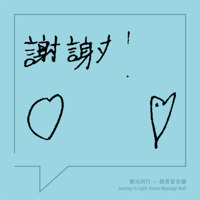 謝謝!
策光同行 — 願景留言牆
Journey in Light: Vision Message Wall